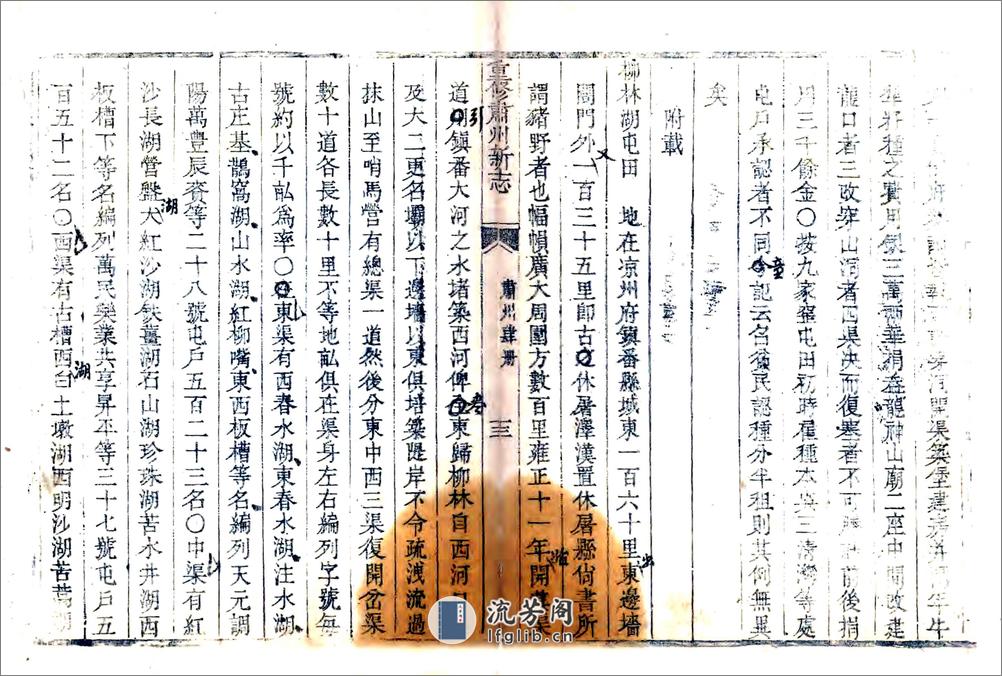 開渠築堡建
籽種之實用銀三萬兩華捐在龍神山廟二座中間改建
龍口者三改穿山洞者四渠決而復塞者不可 前後捐
用三千餘金○按九家窑屯田初時種種本與三清灣等處
屯戶承認者不同今記云召貧民認種分半租則其例無異
矣
附載
柳林湖屯田 地在凉州府鎮番縣城東一百六十里東邊墻
閭門外一百三十五里即古休屠澤漢置休屠縣尙書所
謂豬野者也幅幀廣大周圍方數百里雍正十一年開渠
道引鎮番大河之水堵築西河俾東歸柳林自西河
及大二更名壩以下邊墻以東俱培築隄岸不令疏洩流過
抹山至哨馬營有總渠一道然後分東中西三渠復開岔渠
數十道各長數十里不等地畝俱在渠身左右編列字號每
號約以千畝爲率○東渠有西春水湖東春水湖注水湖
古庄基鵲窩湖山水湖紅柳嘴東西板槽等名編列天元調
陽萬豐辰賚等二十八號屯戶五百二十三名○中渠有紅
沙長湖營盤大湖紅沙湖鉄薑湖石山湖珍珠湖苦水井湖西
板槽下等名編列萬民樂業共享昇平等三十七號屯戶五
百五十二名○西渠有古槽西白土墩湖西明沙湖苦蒿湖
重修肅州新志
肅州肆册
三
流芳阁
lfglib.cn